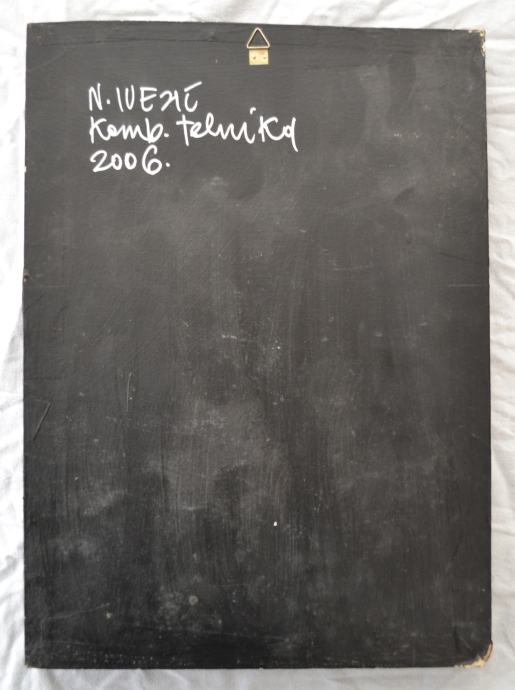 N. IVEZIĆ
Komb. tehnika
2006.